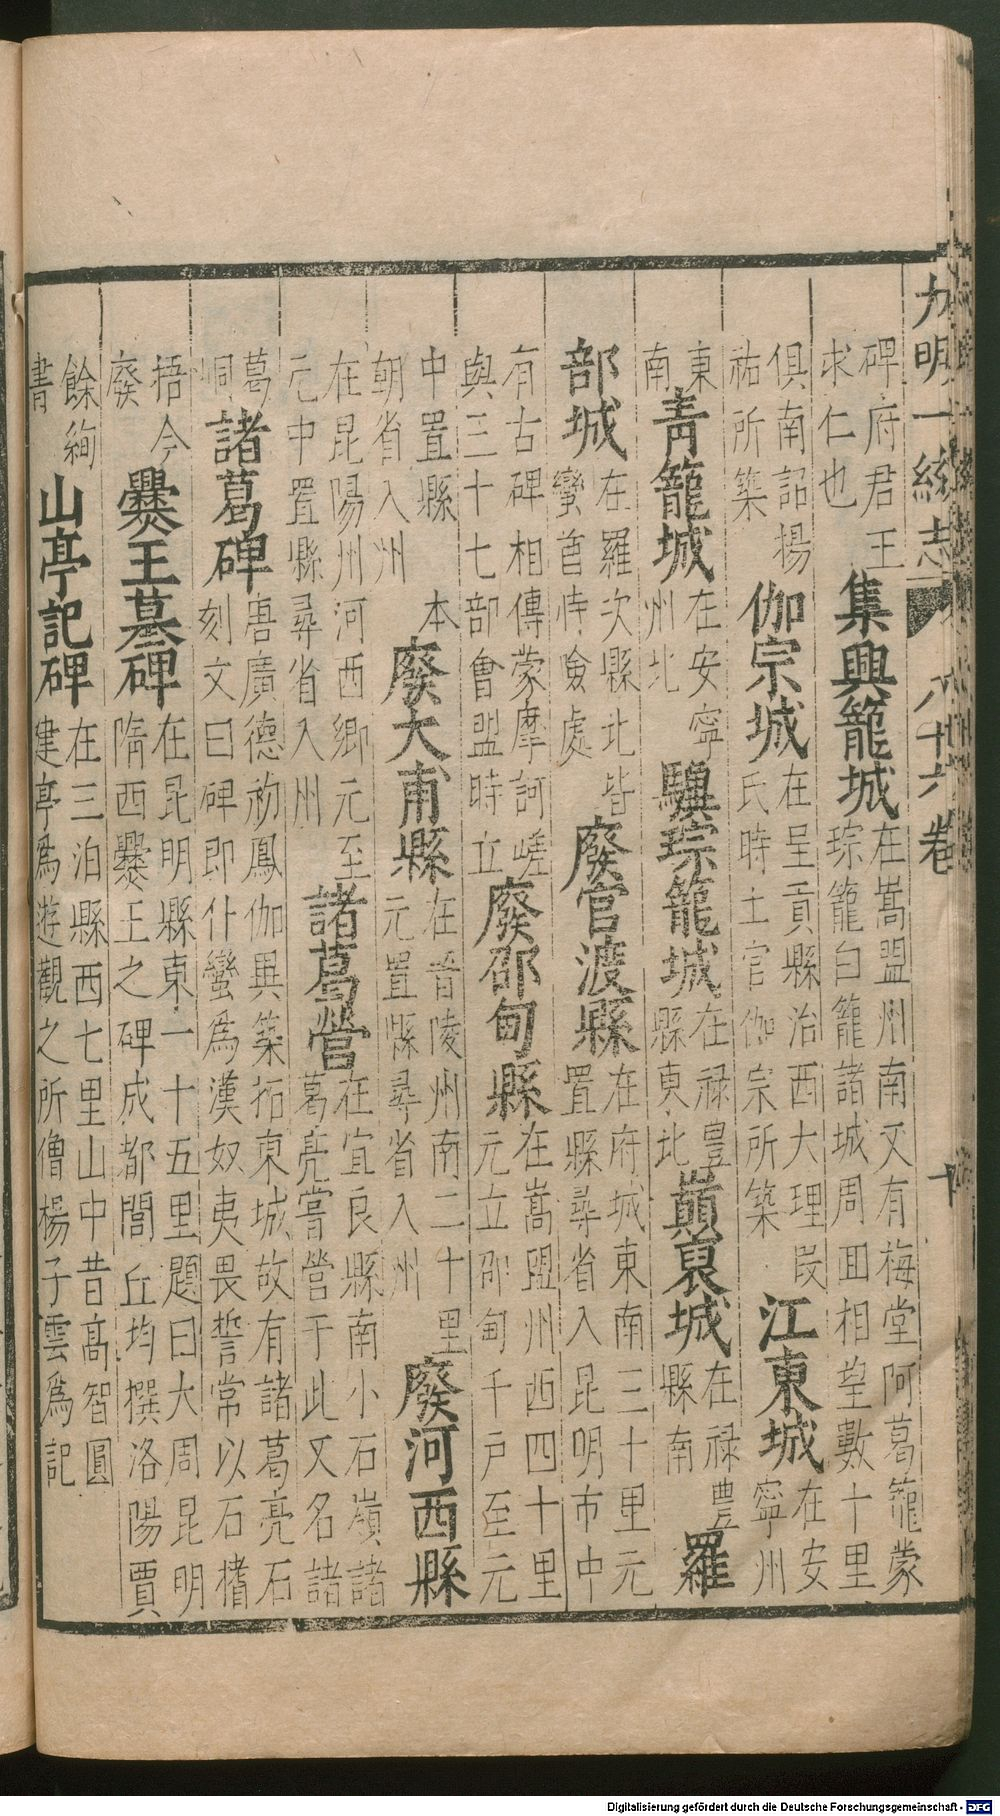 大明一統志 八十六卷 十
碑府君王
求仁也
集興籠城
在嵩盟州南又有梅堂阿葛籠蒙
琮籠白籠諸城周回相望數十里
俱南詔揚
祐所築
伽宗城
在呈貢縣治西大理段
氏時土官伽宗所築
江東城
在安
寧州
東
南
青籠城
在安寧
州北
驥琮籠城
在祿豊
縣東北
巔裒城
在祿豊
縣南
羅
部城
在羅次縣北皆
蠻酋恃險處
廢官渡縣
在府城東南三十里元
置縣尋省入昆明市中
有古碑相傳蒙摩訶嵯
與三十七部會盟時立
廢邵甸縣
在嵩盟州西四十里
元立邵甸千戶至元
中置縣 本
朝省入州
廢大甫縣
在晉陵州南二十里
元置縣尋省入州
廢河西縣
在昆陽州河西鄉元至
元中置縣尋省入州
諸葛營
在宜良縣南小石嶺諸
葛亮嘗營于此又名諸
葛
洞
諸葛碑
唐廣德初鳳伽異築拓東城故有諸葛亮石
刻文曰碑即仆蠻爲漢奴夷畏誓常以石搘
捂今
廢
爨王墓碑
在昆明縣東一十五里題曰大周昆明
隋西爨王之碑成都閭丘均撰洛陽賈
餘絢
書
山亭記碑
在三泊縣西七里山中昔高智圓
建亭爲遊觀之所僧楊子雲爲記
Digitalisierung gefördert durch die Deutsche Forschungsgemeinschaft - DFG